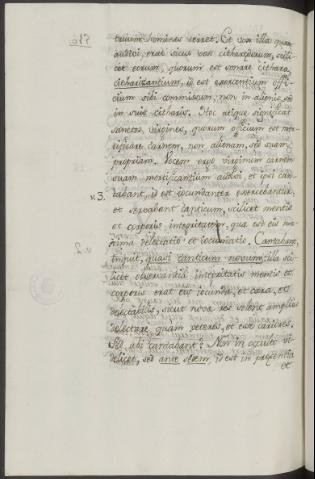 terret. Et vox illa quam
audivi, erat sicut vox citharœdorum, scili-
cet eorum, quorum est sonare cithara
citharizantium, id est exercentium offi-
cium sibi commissum, non in alienis, sed
in suis citharis. Hoc utique significat
sanctas virgines, quorum officium est mor-
tificare carnem, non alienam, sed suam
propriam. Vocem ergo virginum carnem
suam mortificantium audivi, et ipsi can-
v. 3. tabant, id est iucundanter exercebantur
et servabant canticum, scilicet mentis
et corporis integritatem, qua est eis ma-
xima delectatio et iocunditatio. Cantabant,
v. 2. inquit, quasi canticum novum, illa sci-
licet observantia integritatis mentis et
corporis erat eis iucunda, et cara, et
delectabilis, sicut nova res solent amplius
delectare, quam veteres, et esse cariores.
Sed ubi cantabant? Non in occulti vi-
delicet, sed ante sedem, id est in præsentia
et